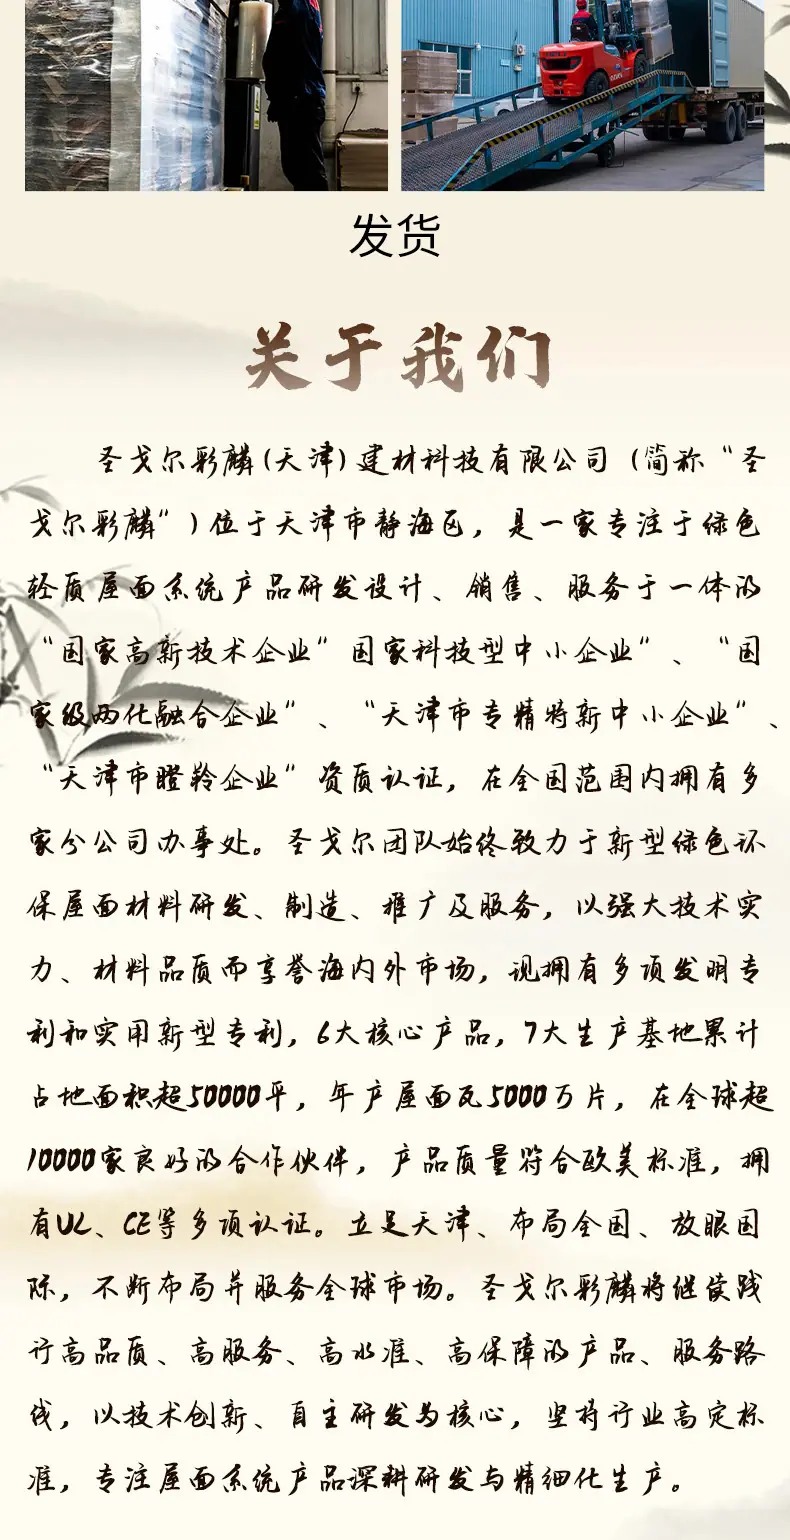 发货
关于我们
圣戈尔彩麟(天津)建材科技有限公司(简称“圣
戈尔彩麟”)位于天津市静海区，是一家专注于绿色
轻质屋面系统产品研发设计、销售、服务于一体的
“国家高新技术企业”国家科技型中小企业”、“国
家级两化融合企业”、“天津市专精特新中小企业”、
“天津市瞪羚企业”资质认证，在全国范围内拥有多
家分公司办事处。圣戈尔团队始终致力于新型绿色环
保屋面材料研发、制造、推广及服务，以强大技术实
力、材料品质而享誉海内外市场，现拥有多项发明专
利和实用新型专利，6大核心产品，7大生产基地累计
占地面积超50000平，年产屋面瓦5000万片，在全球超
10000家良好的合作伙伴，产品质量符合欧美标准，拥
有UL、CE等多项认证。立足天津、布局全国、放眼国
际，不断布局并服务全球市场。圣戈尔彩麟将继续践
行高品质、高服务、高水准、高保障的产品、服务路
线，以技术创新、自主研发为核心，坚持行业高定标
准，专注屋面系统产品深耕研发与精细化生产。